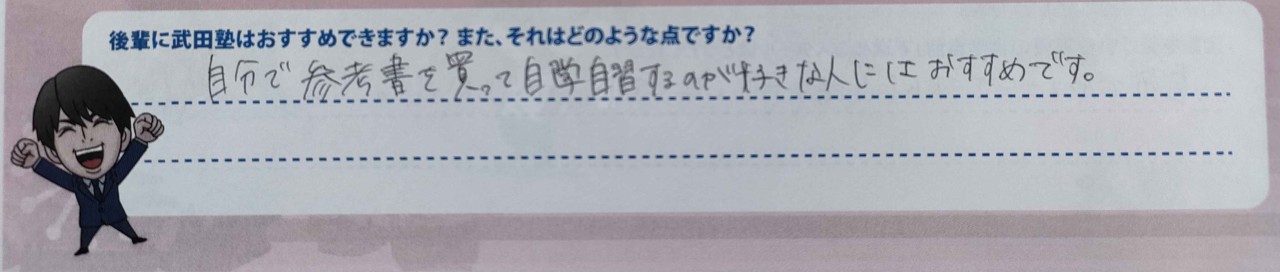 後輩に武田塾はおすすめできますか? また、それはどのような点ですか?
自分で参考書を買って自学自習するのが好きな人にはおすすめです。